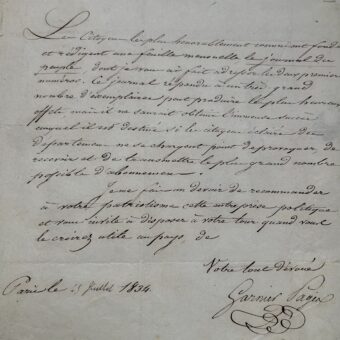 Les Citoyens les plus honorablement connus ont fondé
et rédigent une feuille mensuelle le journal du
peuple dont je vous ai fait adresser les deux premiers
numéros. Ce journal répandu à un très grand
nombre d'exemplaires peut produire les plus heureux
effets mais il ne saurait obtenir l'immense succès
auquel il est destiné si les citoyens des
départemens ne se chargent pas de provoquer, de
recevoir et de transmettre le plus grand nombre
possible d'abonnemens.
Je me fais un devoir de recommander
à votre patriotisme cette entreprise politique
et vous invite à disposer à votre tour quand vous
le croirez utile au pays, de
Votre tout dévoué
Paris le Juillet 1834
Garnier Pagès